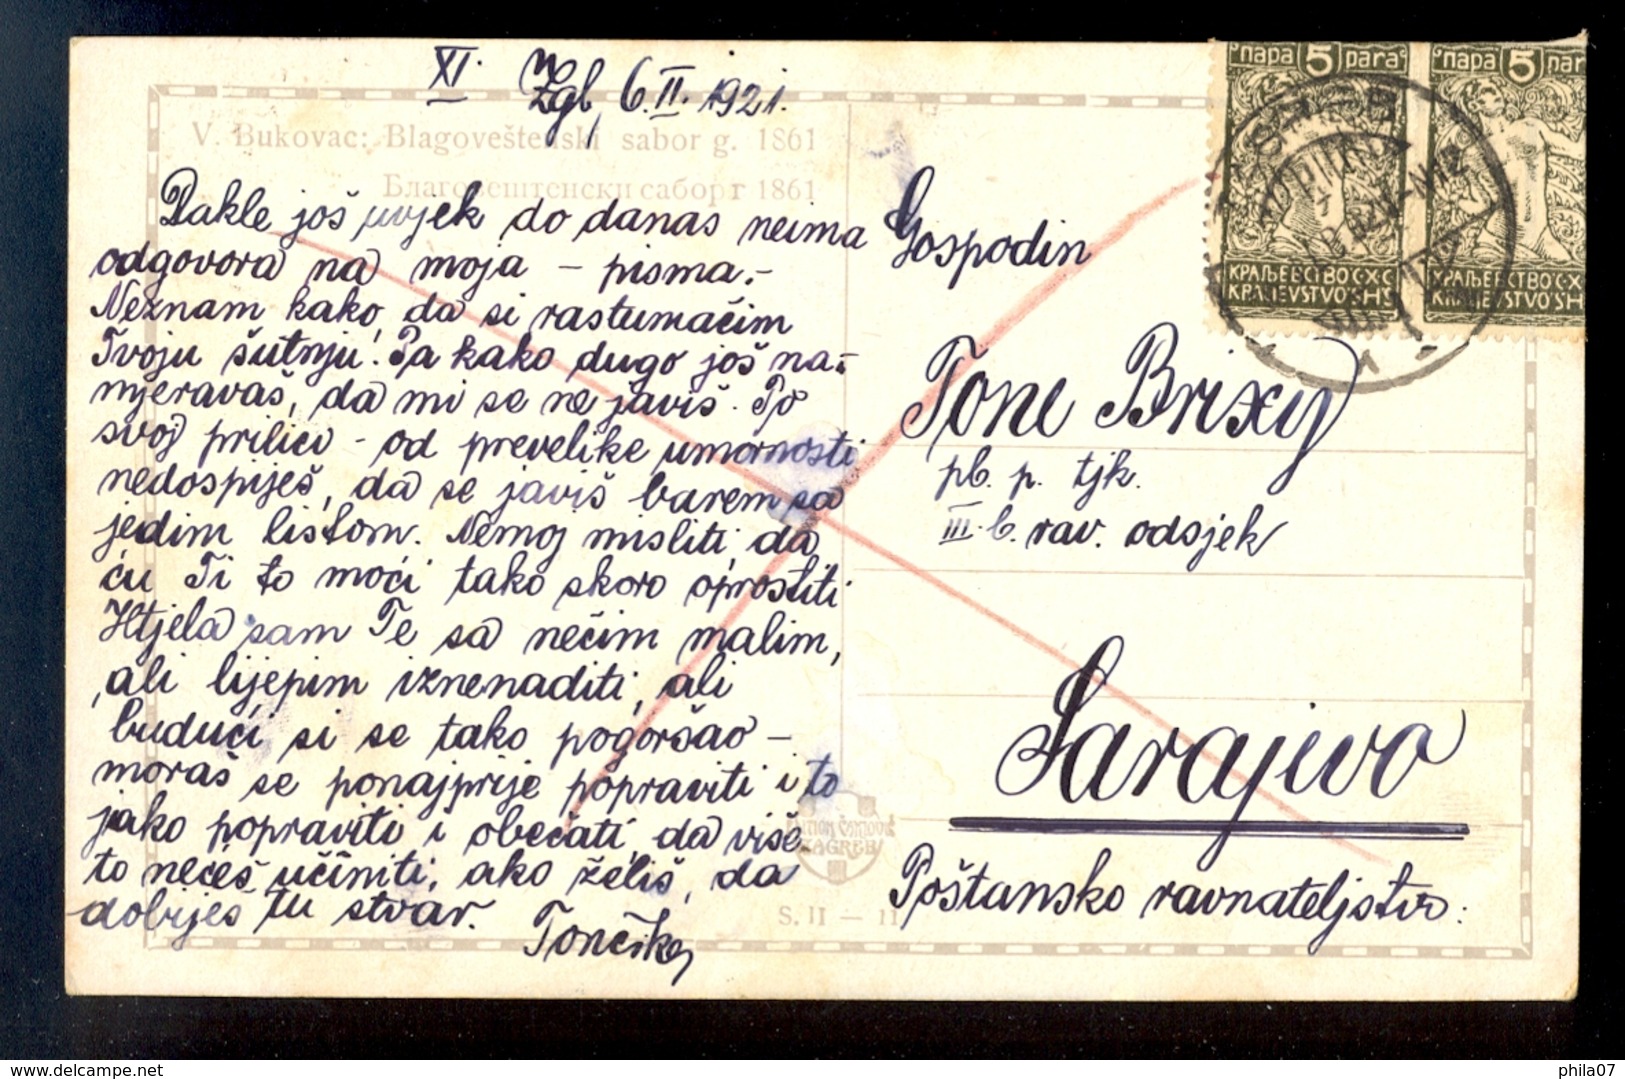 XI. Zgb, 6.II.1921.
V. Bukovac: Blagoveštenski sabor g. 1861
Благовештенски сабор г 1861
Dakle još uvjek do danas neima
odgovora na moja - pisma.-
Neznam kako, da si rastumačim
Tvoju šutnju! Pa kako dugo još na-
mjeravaš, da mi se ne javiš. Po
svoj prilici - od prevelike umornosti
nedospiješ, da se javiš barem sa
jedim listom. Nemoj misliti, da
ću Ti to moći tako skoro oprostiti
Htjela sam Te sa nečim malim,
ali lijepim iznenaditi, ali
budući si se tako pogoršao -
moraš se ponajprije popraviti i to
jako popraviti i obećati, da više
to nećeš učiniti, ako želiš, da
dobiješ tu stvar.
Tončika
Gospodin
Tone Brixy
pb. p. tjk.
III. b. rav. odsjek
Sarajevo
Poštansko ravnateljstvo.
пара 5 para
пара 5 par
КРАЉЕВСТВО С·Х·С
KRALJEVSTVO SHS
КРАЉЕВСТВО С·Х
KRALJEVSTVO SH
EDITION ČAKLOVIĆ
ZAGREB
S. II — 11
phila07